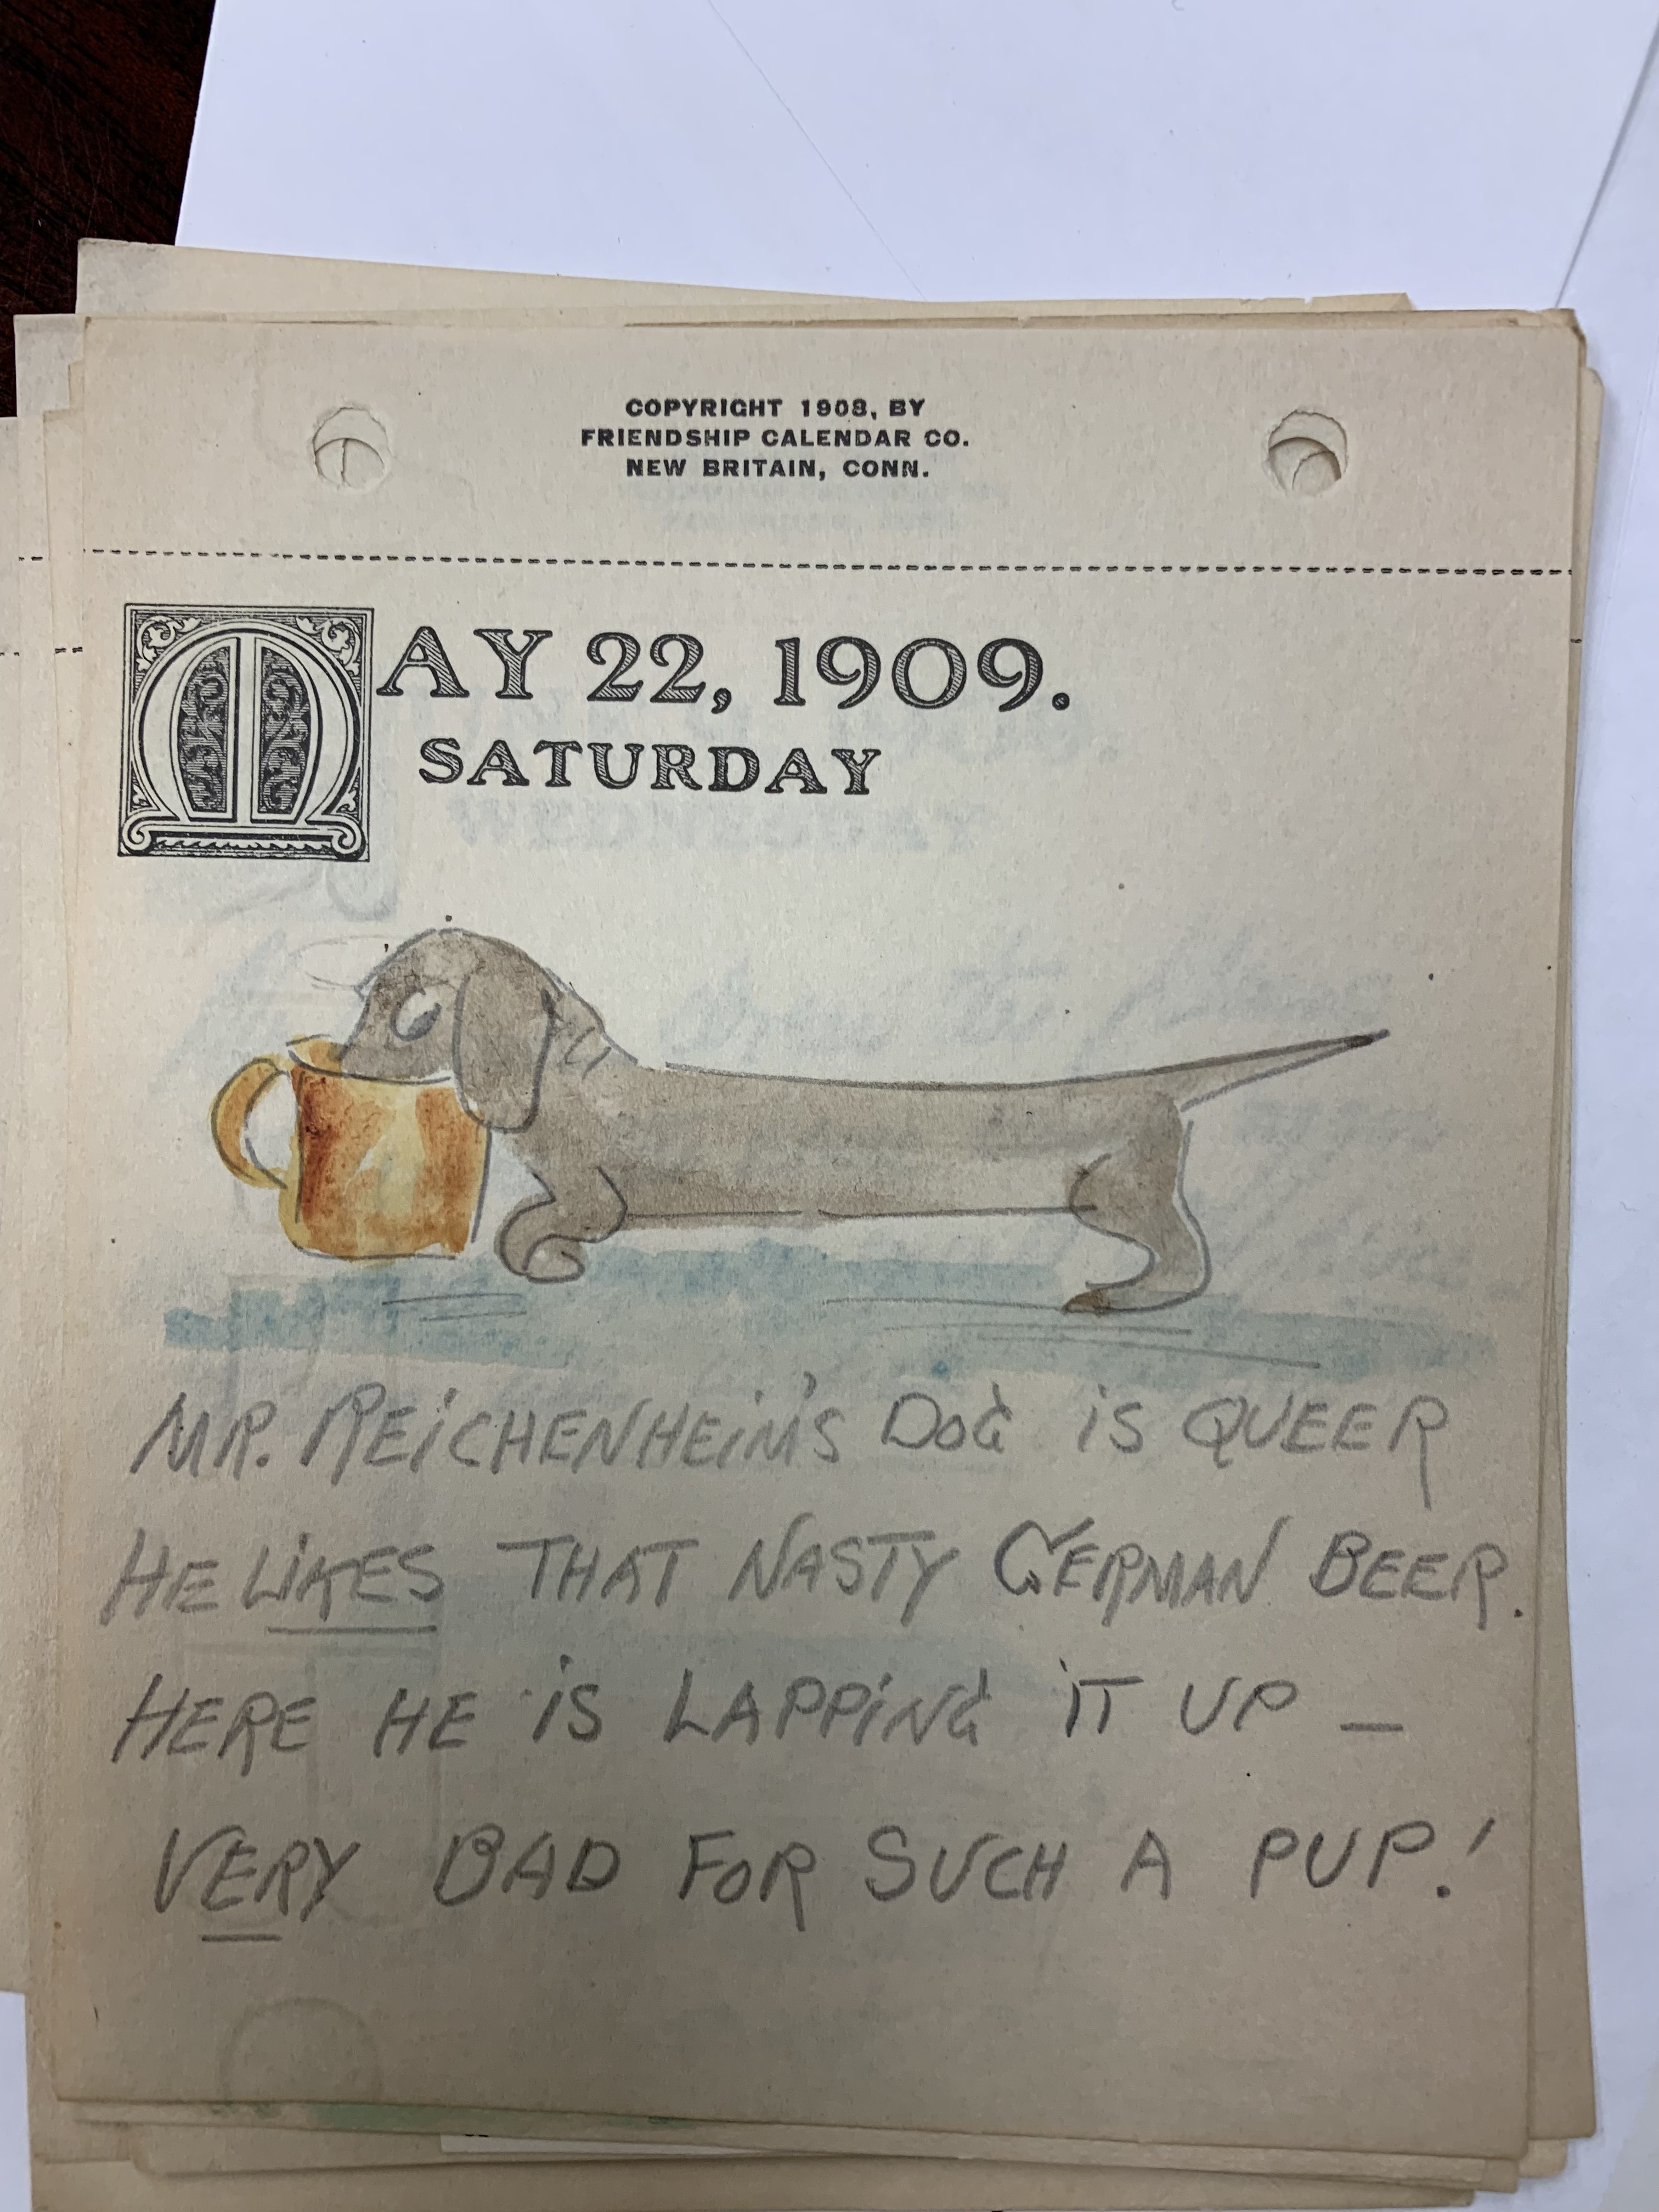 COPYRIGHT 1908, BY
FRIENDSHIP CALENDAR CO.
NEW BRITAIN, CONN.
MAY 22, 1909.
SATURDAY
MR. REICHENHEIM'S DOG IS QUEER
HE LIKES THAT NASTY GERMAN BEER.
HERE HE IS LAPPING IT UP —
VERY BAD FOR SUCH A PUP!